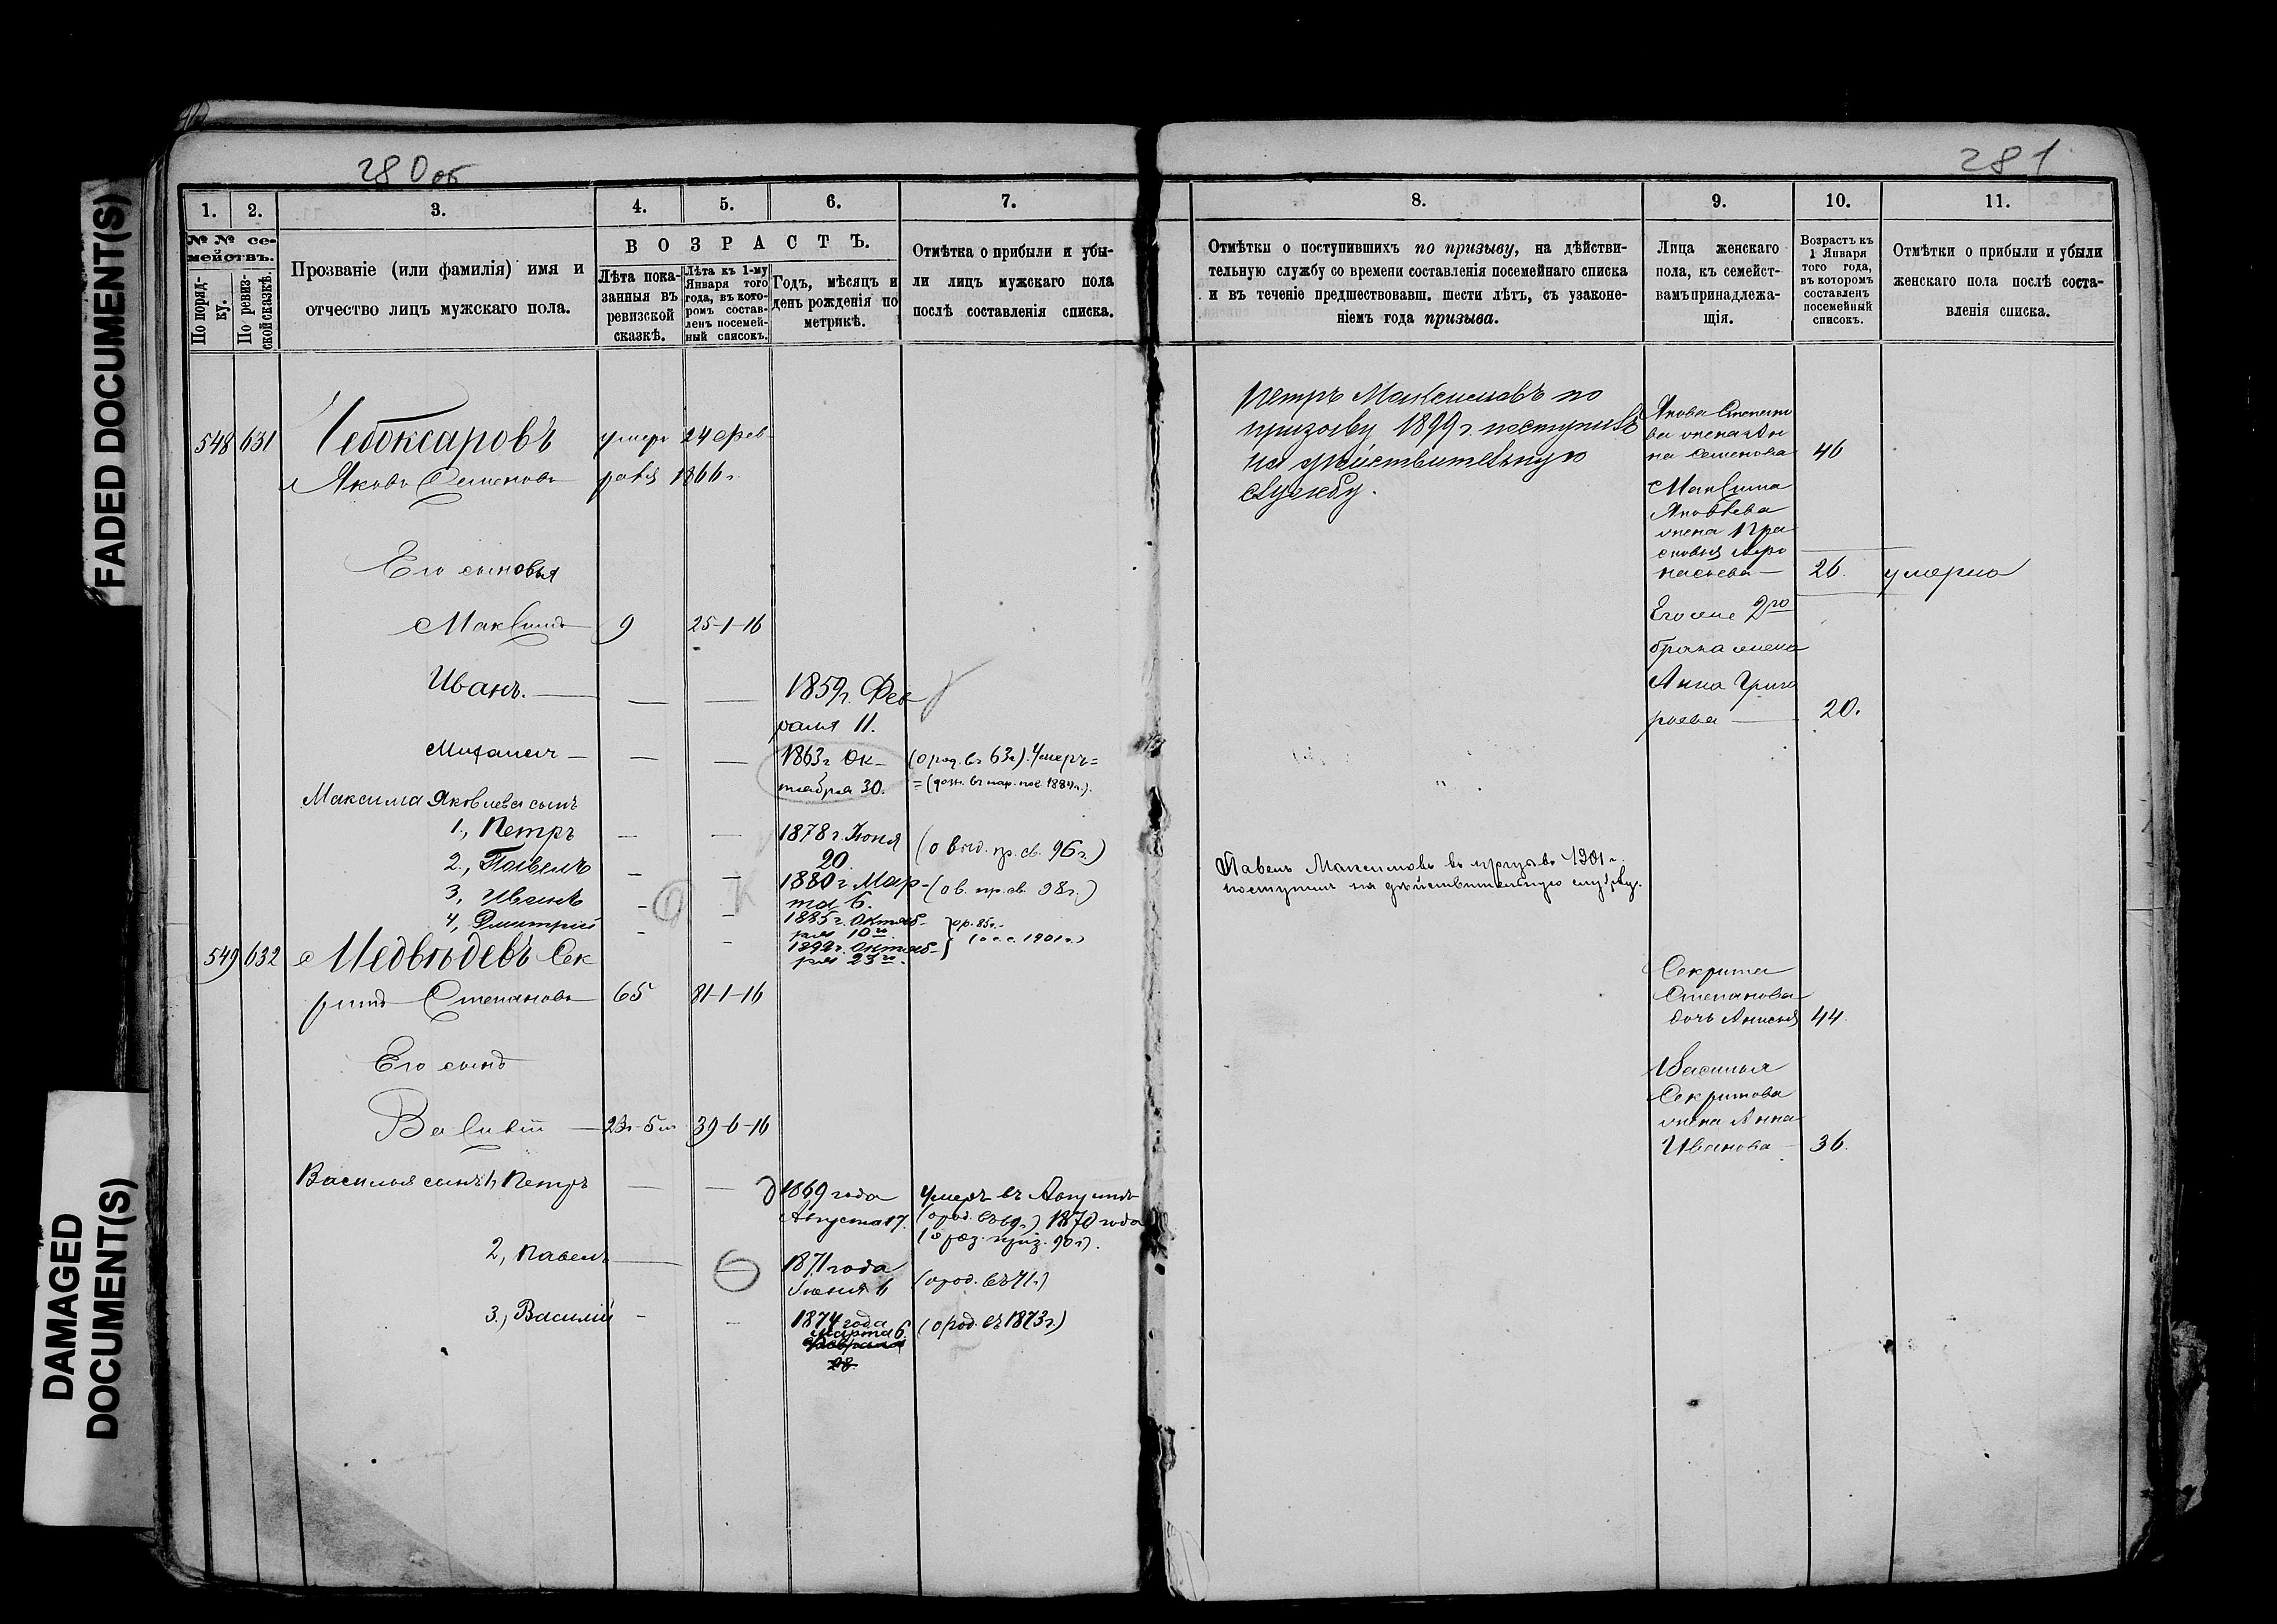 FADED DOCUMENT(S)
DAMAGED
DOCUMENT(S)
280 об
1.
2.
3.
4.
5.
6.
7.
№ № се-
мействъ.
По поряд-
ку.
По ревиз-
ской сказкѣ.
Прозваніе (или фамилія) имя и
отчество лицъ мужскаго пола.
ВОЗРАСТЪ.
Лѣта пока-
занныя въ
ревизской
сказкѣ.
Лѣта къ 1-му
Января того
года, въ кото-
ромъ состав-
ленъ посемей-
ный списокъ.
Годъ, мѣсяцъ и
день рожденія по
метрикѣ.
Отмѣтка о прибыли и убы-
ли лицъ мужскаго пола
послѣ составленія списка.
548 631 Чебоксаровъ умеръ 24 фев-
Яковъ Семеновъ раля 1866 г.
Его сыновья
Максимъ 9 25-1-16
Иванъ. — — 1859 г. Фев
раля 11.
Михаилъ — — — 1863 г. Ок- (о род. въ 63 г.). Умеръ=
тября 30. =(дон. въ нар. 1884 г.).
Максима Яковлева сынъ
1., Петръ — — 1878 г. Іюня
20. (о вкл. пр. св. 96 г.)
2., Павелъ — — 1880 г. Мар- (о в. пр. св. 98 г.)
та 6.
3, Иванъ - - 1885 г. Октяб- ор. 85 г.
ря 10 го
4, Дмитрій - - 1892 г. Октяб- 1901 г.)
ря 23 го.
549 632 Медвѣдевъ Сек
ритъ Степановъ 65 81-1-16
Его сынъ
Василій — 23 г-5 м 39-6-16
Василья сынъ 1, Петръ — — 1869 года Умеръ въ Августѣ
Августа 17. (о род. въ 69 г.) 1870 года
90 г).
2, Павелъ — 1871 года
Іюня (о род. въ 71 г.)
3., Василій - - 1874 года (о род. въ 1873 г.)
Марта 6
Февраля
28
281
8.
9.
10.
11.
Отмѣтки о поступившихъ по призыву, на дѣйстви-
тельную службу со времени составленія посемейнаго списка
и въ теченіе предшествовавш. шести лѣтъ, съ узаконе-
ніемъ года призыва.
Лица женскаго
пола, къ семейст-
вамъ принадлежа-
щія.
Возрастъ къ
1 Января
того года,
въ которомъ
составленъ
посемейный
списокъ.
Отмѣтки о прибыли и убыли
женскаго пола послѣ соста-
вленія списка.
Петръ Максимовъ по
призыву 1899 г. поступилъ
на дѣйствительную
службу.
Павелъ Максимовъ въ призывъ 1901 г.
поступилъ на дѣйствительную службу.
Якова
жена
на Семенова 46
Максима
Яковлева
жена Пра
сковья Афо
насьева — 26. умерла
Его же 2го
брака жена
Анна Григо
рьева — 20.
Секрита
Степанова
дочь Анисья 44.
Василья
Секритова
жена Анна
Иванова - 36.